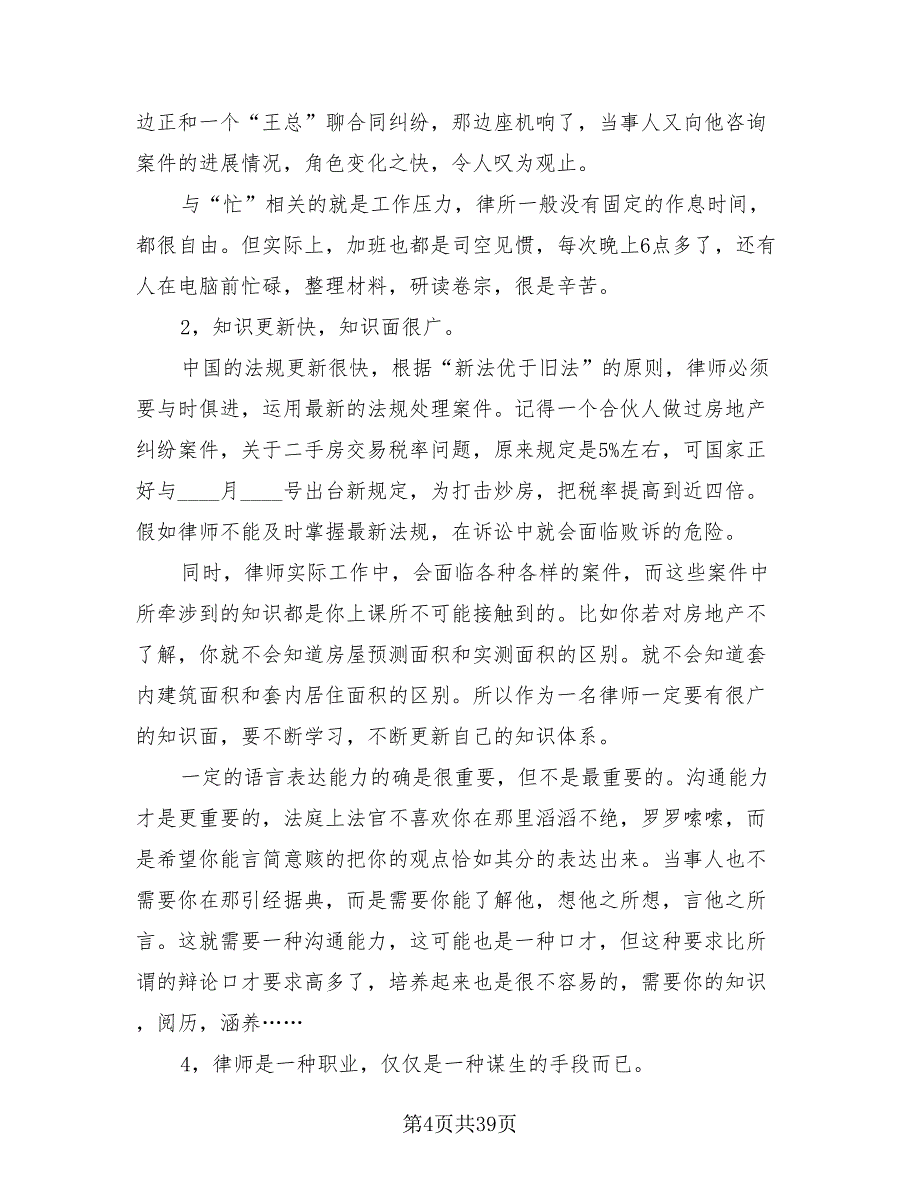 边正和一个“王总”聊合同纠纷，那边座机响了，当事人又向他咨询
案件的进展情况，角色变化之快，令人叹为观止。
与“忙”相关的就是工作压力，律所一般没有固定的作息时间，
都很自由。但实际上，加班也都是司空见惯，每次晚上6点多了，还有
人在电脑前忙碌，整理材料，研读卷宗，很是辛苦。
2，知识更新快，知识面很广。
中国的法规更新很快，根据“新法优于旧法”的原则，律师必须
要与时俱进，运用最新的法规处理案件。记得一个合伙人做过房地产
纠纷案件，关于二手房交易税率问题，原来规定是5%左右，可国家正
好与____月____号出台新规定，为打击炒房，把税率提高到近四倍。
假如律师不能及时掌握最新法规，在诉讼中就会面临败诉的危险。
同时，律师实际工作中，会面临各种各样的案件，而这些案件中
所牵涉到的知识都是你上课所不可能接触到的。比如你若对房地产不
了解，你就不会知道房屋预测面积和实测面积的区别。就不会知道套
内建筑面积和套内居住面积的区别。所以作为一名律师一定要有很广
的知识面，要不断学习，不断更新自己的知识体系。
一定的语言表达能力的确是很重要，但不是最重要的。沟通能力
才是更重要的，法庭上法官不喜欢你在那里滔滔不绝，罗罗嗦嗦，而
是希望你能言简意赅的把你的观点恰如其分的表达出来。当事人也不
需要你在那引经据典，而是需要你能了解他，想他之所想，言他之所
言。这就需要一种沟通能力，这可能也是一种口才，但这种要求比所
谓的辩论口才要求高多了，培养起来也是很不容易的，需要你的知识
，阅历，涵养……
4，律师是一种职业，仅仅是一种谋生的手段而已。
第4页共39页